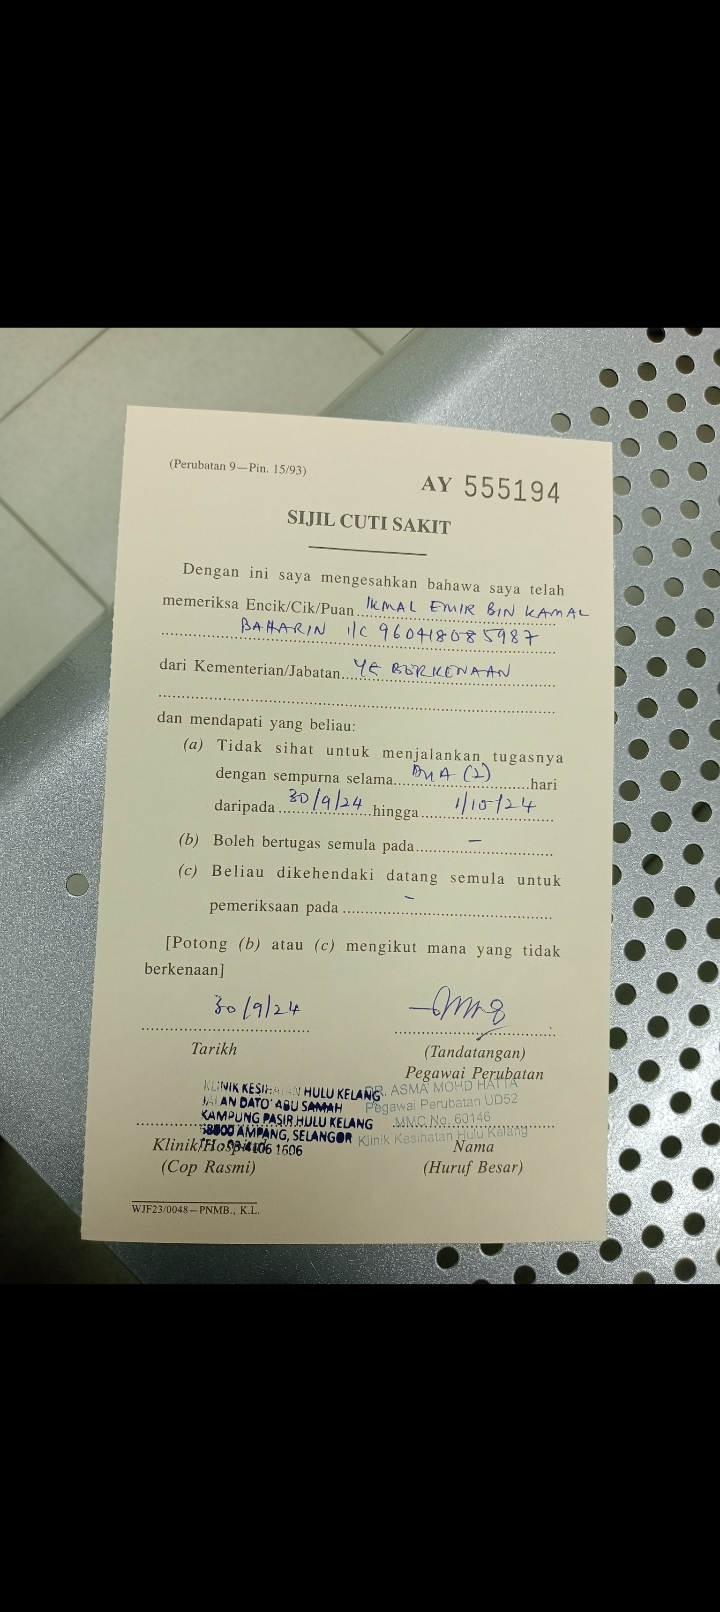 (Perubatan 9—Pin. 15/93)
AY 555194
SIJIL CUTI SAKIT
Dengan ini saya mengesahkan bahawa saya telah
memeriksa Encik/Cik/Puan IKMAL EMIR BIN KAMAL
BAHARIN I/C 960418085987
dari Kementerian/Jabatan YG BERKENAAN
dan mendapati yang beliau:
(a) Tidak sihat untuk menjalankan tugasnya
dengan sempurna selama DUA (2) hari
daripada 30/9/24 hingga 1/10/24
(b) Boleh bertugas semula pada –
(c) Beliau dikehendaki datang semula untuk
pemeriksaan pada –
[Potong (b) atau (c) mengikut mana yang tidak
berkenaan]
30/9/24
Tarikh
(Tandatangan)
Pegawai Perubatan
KLINIK KESIHATAN HULU KELANG
JALAN DATO' ABU SAMAH
KAMPUNG PASIR HULU KELANG
68000 AMPANG, SELANGOR
1606
Klinik/Hospital
(Cop Rasmi)
DR. ASMA MOHD HATTA
Pegawai Perubatan UD52
MMC No. 60146
Klinik Kesihatan Hulu Kelang
Nama
(Huruf Besar)
WJF23/0048—PNMB., K.L.